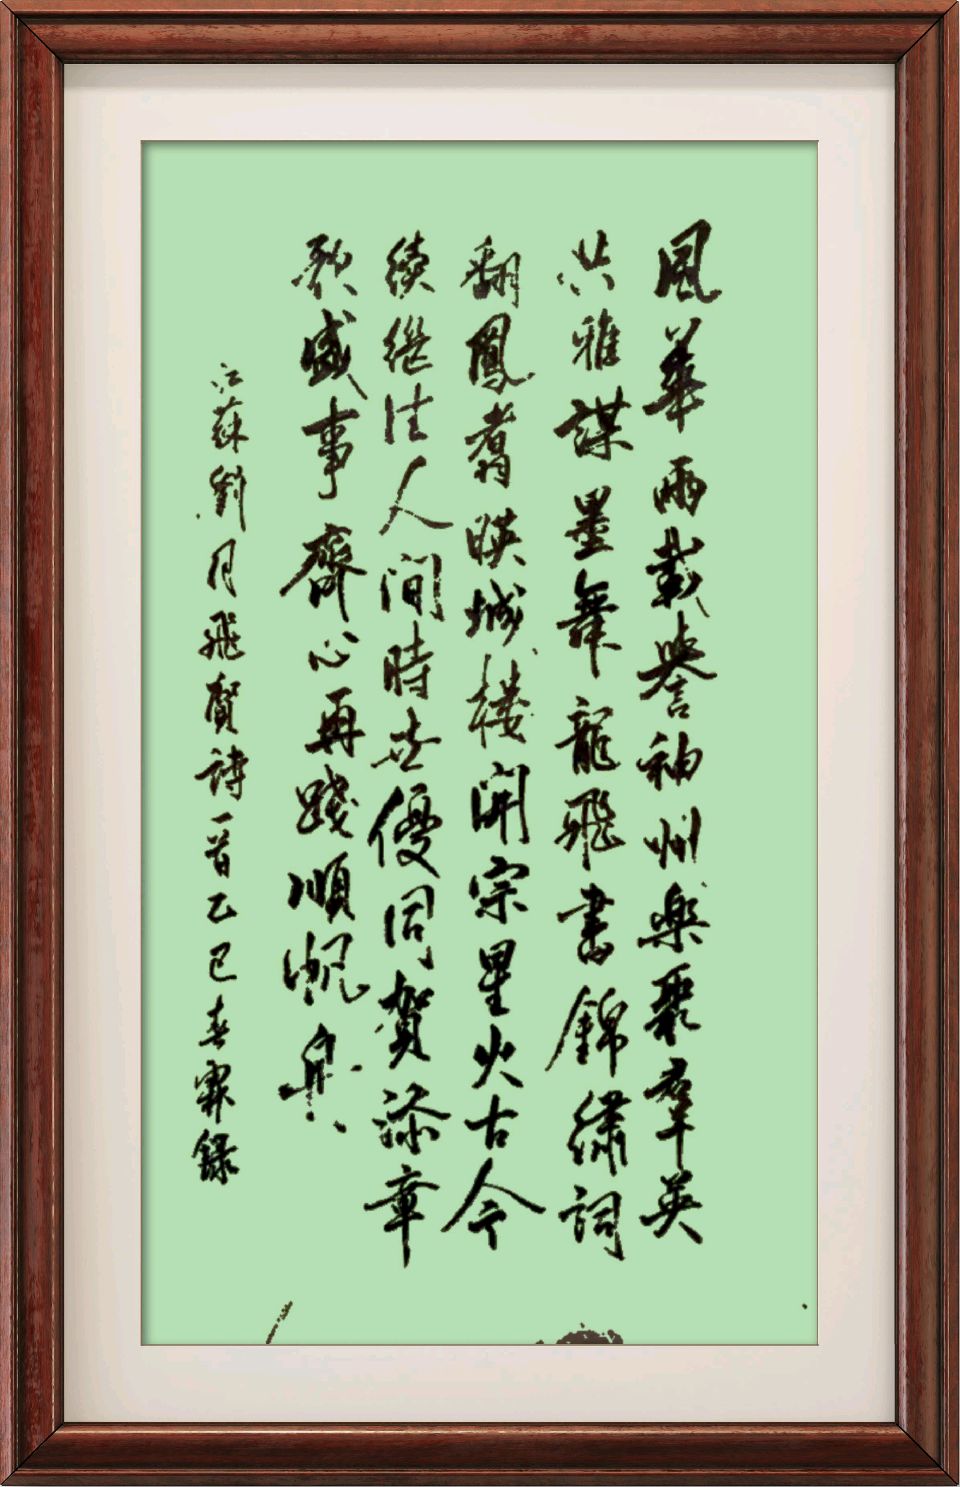 風華兩載譽神州樂聚群英
共雅謀墨舞龍飛書錦繡詞
翻鳳翥映城樓開宗星火古今
續繼往人間時世優同賀添章
歌盛事齊心再踐順帆舟
江蘇劉月飛賀詩一首乙巳春霖錄